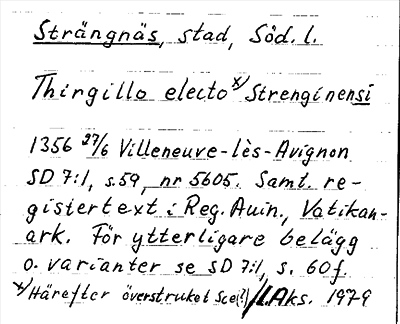 Strängnäs, stad, Söd. l.
Thirgillo electo x) Strenginensi
1356 27/6 Villeneuve-lès-Avignon
SD 7:1, s. 59, nr 5605. Samt. re-
gistertext i Reg. Avin., Vatikan-
ark. För ytterligare belägg
o. varianter se SD 7:1, s. 60 f.
x) Härefter överstruket Sce(?) // L Aks. 1979